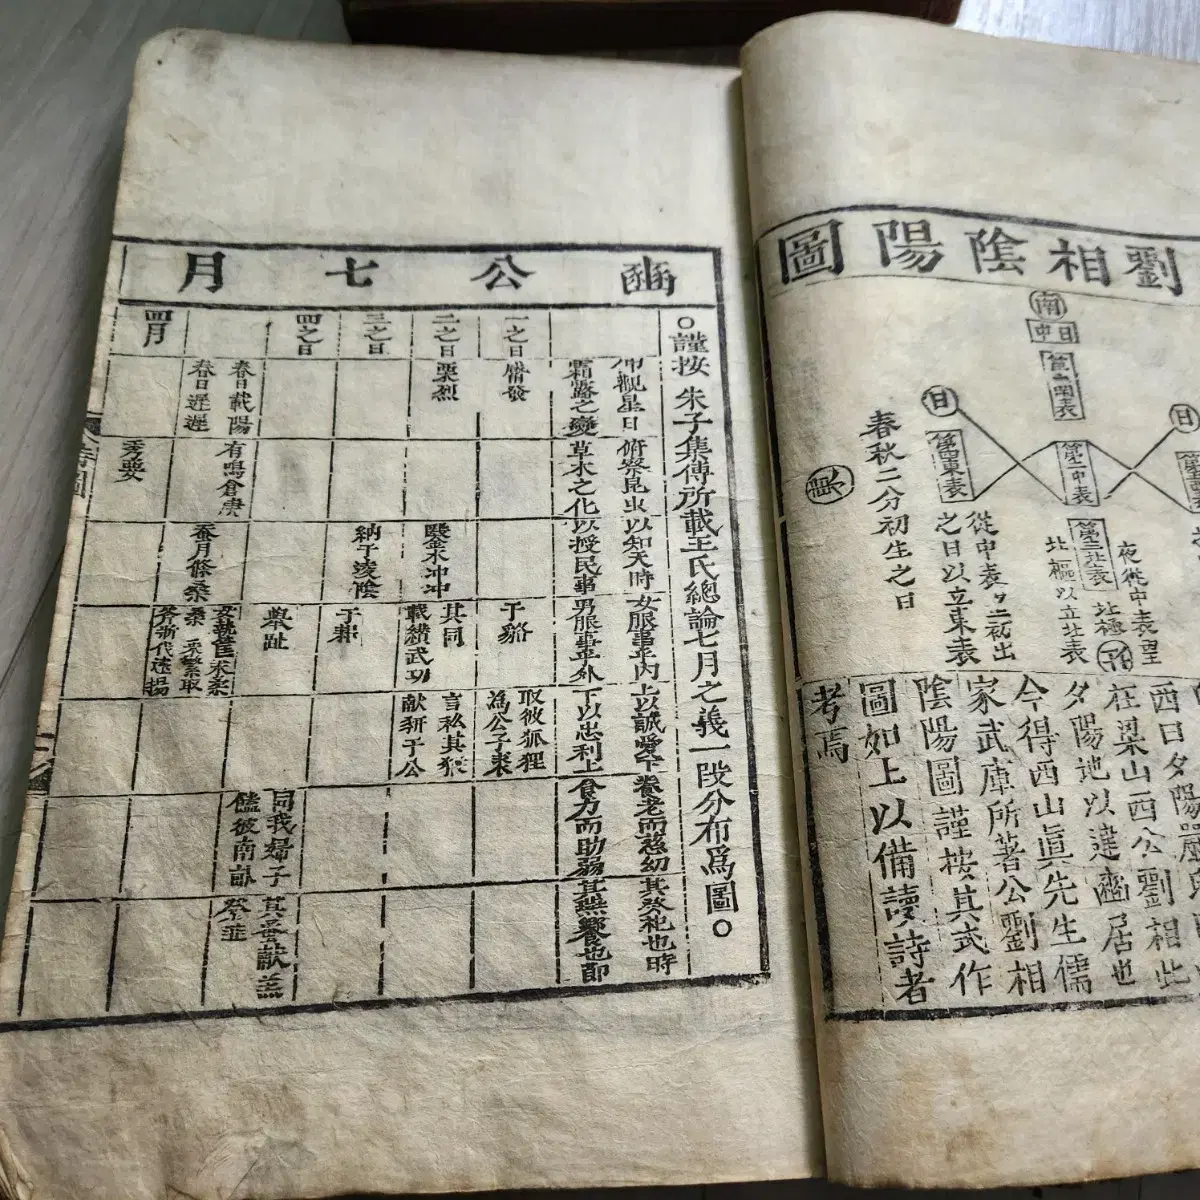 劉相陰陽圖
南
日中
日
日
第二中表
春秋二分初生之日
從中表夕初出
之日以立東表
夜從中表望
北極
北樞以立北表
在梁山西公劉相此
夕陽地以建豳居也
今得西山眞先生儒
家武庫所著公劉相
陰陽圖謹按其式作
圖如上以備讀詩者
考焉
豳公七月
○謹按朱子集傳所載王氏總論七月之義一段分布爲圖○
仰觀星日
霜露之變
俯察昆虫
草木之化
以知天時
以授民事
女服事乎內
男服事乎外
上以誠愛下
下以忠利上
養老而慈幼
食力而助弱
其祭祀也時
其燕饗也節
一之日觱發
于貉
取彼狐狸
爲公子裘
二之日栗烈
鑿氷冲冲
其同
載纘武功
言私其豵
献豜于公
三之日
納于凌陰
于耜
四之日
舉趾
同我婦子
饁彼南畝
其蚤献羔
祭韭
春日載陽
春日遲遲
有鳴倉庚
蚕月條桑
女執筐求柔
桑
采蘩
取
斧斨伐遠揚
四月
秀葽